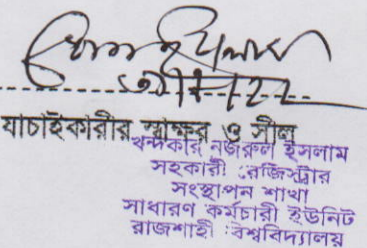 যাচাইকারীর স্বাক্ষর ও সীল
খন্দকার নজরুল ইসলাম
সহকারী রেজিস্ট্রার
সংস্থাপন শাখা
সাধারণ কর্মচারী ইউনিট
রাজশাহী বিশ্ববিদ্যালয়